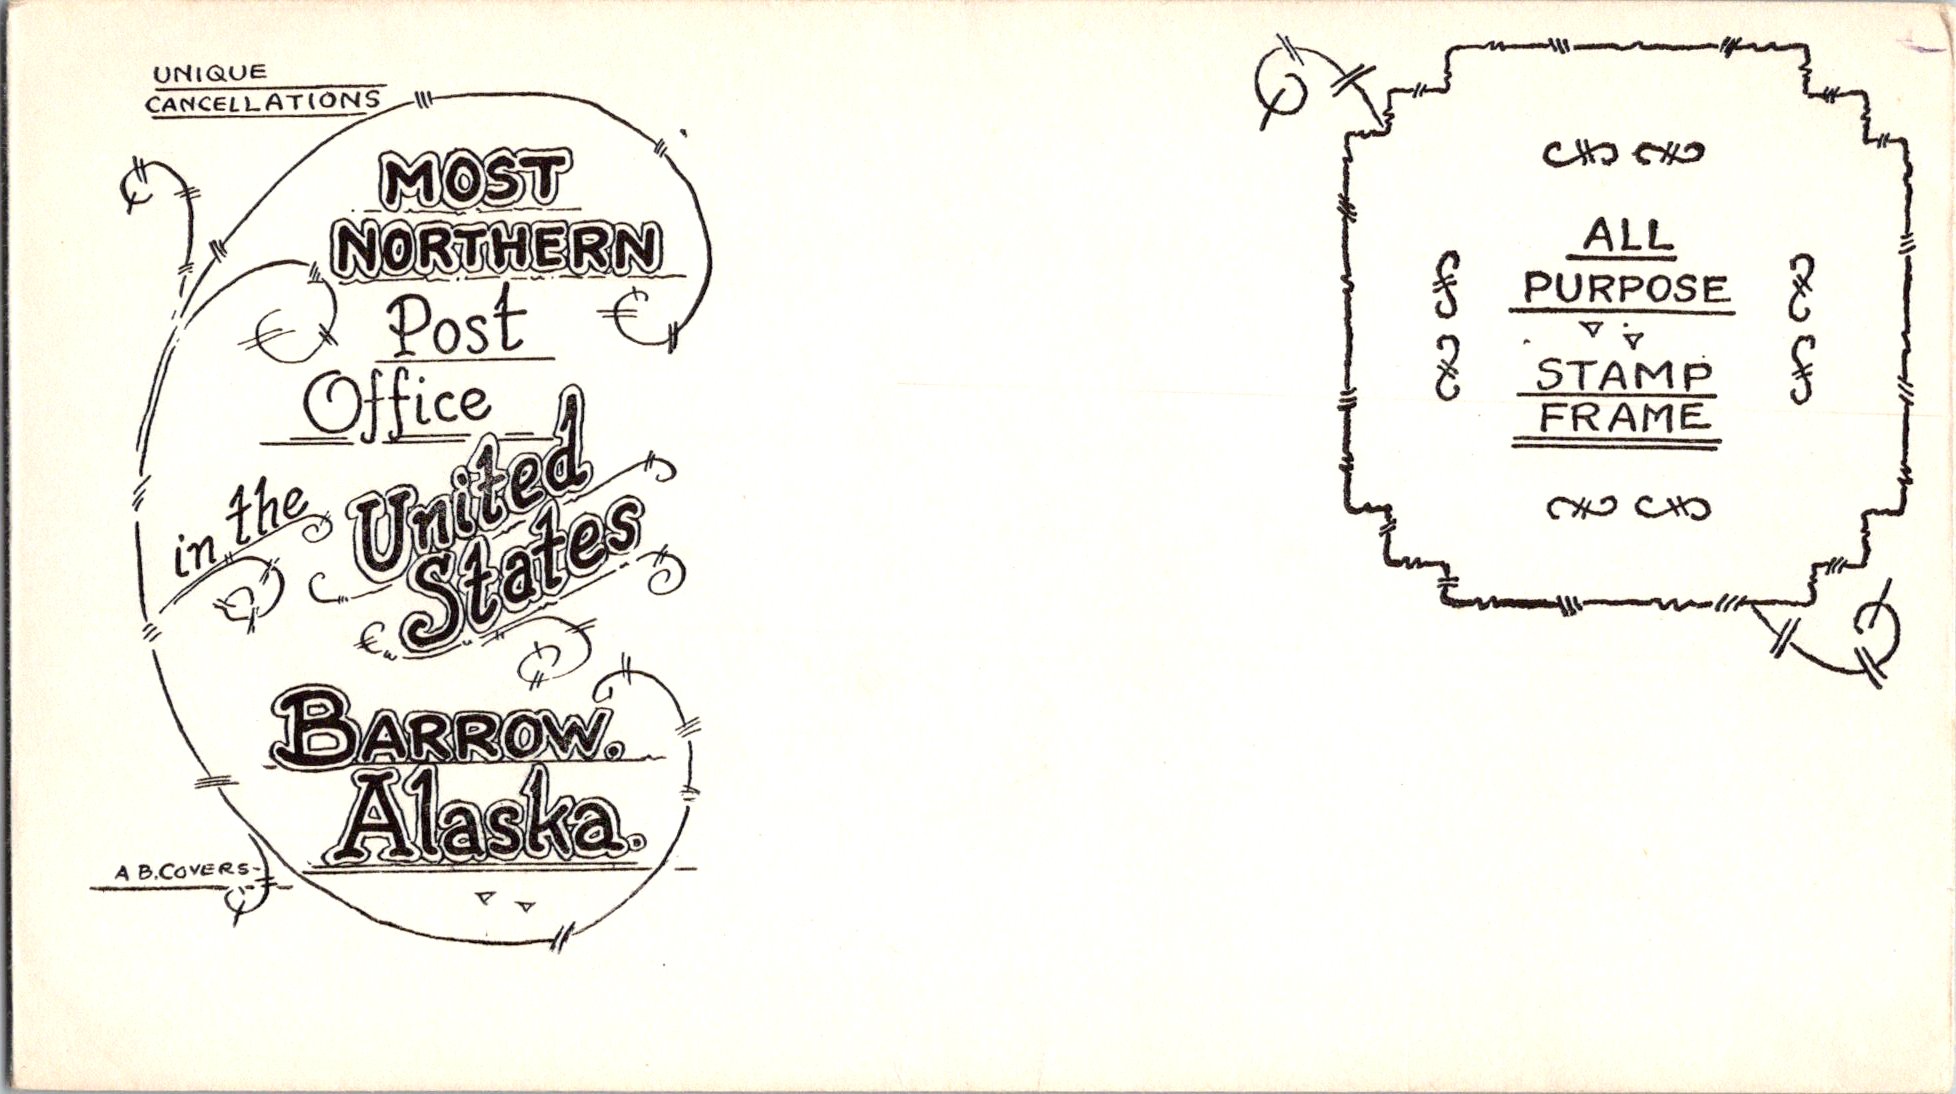 UNIQUE
CANCELLATIONS
MOST
NORTHERN
Post
Office
in the
United
States
BARROW.
Alaska.
A B.COVERS-
ALL
PURPOSE
STAMP
FRAME